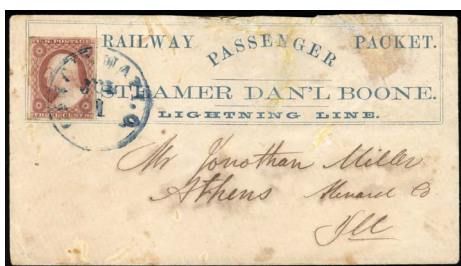 RAILWAY PASSENGER PACKET.
STEAMER DAN'L BOONE.
LIGHTNING LINE.
U.S. POSTAGE
THREE CENTS
1
Mr Jonathan Miller
Athens Menard Co
Ill